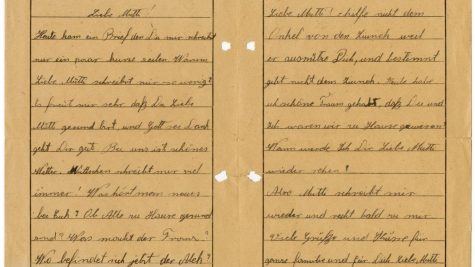 Liebe Mutti!
Heute kam ein Brief den Du mir schreibst
nur ein paar kurze zeilen Warum
Liebe Mutti schreibst mir so wenig?
Es freut mir sehr daß Du Liebe
Mutti gesund bist, und Gott sei Dank
geht Dir gut. Bei uns ist schönes
Wetter. Muttichen schreibt nur viel
immer! Was hört man neues
bei Euch? Ob Alle zu Hause gesund
sind? Was macht der Franz?
Wo befindet sich jetzt der
Liebe Mutti! helfe nicht dem
Onkel von den weil
er ausnütze Dich, und bestimmt
gibt nicht dem Heute habe
ich schöne Traum gehabt, daß Du und
Ich waren wir zu Hause gewesen?
Wann werde Ich Dir Liebe Mutti
wieder sehen?
Also Mutti schreibt mir
wieder und recht bald zu mir
Viele Grüße und Küsse für
ganze familie und für Dich Liebe Mutti